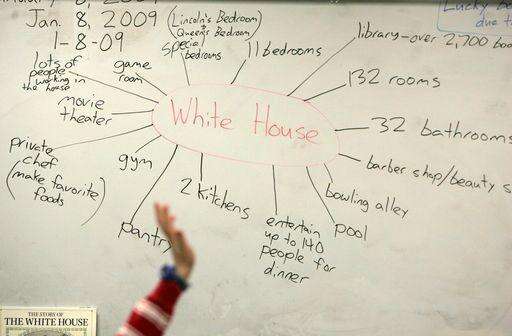 Jan. 8, 2009
1-8-09
(Lincoln's Bedroom)
+
Queen's Bedroom)
special
bedrooms
11 bedrooms
library-over 2,700
132 rooms
32 bathrooms
barber shop/beauty
bowling alley
pool
entertain
up to 140
people for
dinner
2 kitchens
pantry
gym
private
chef
(make favorite
foods)
movie
theater
lots of
people
working in
the house
game
room
White House
Lucky
due to
THE STORY OF
THE WHITE HOUSE